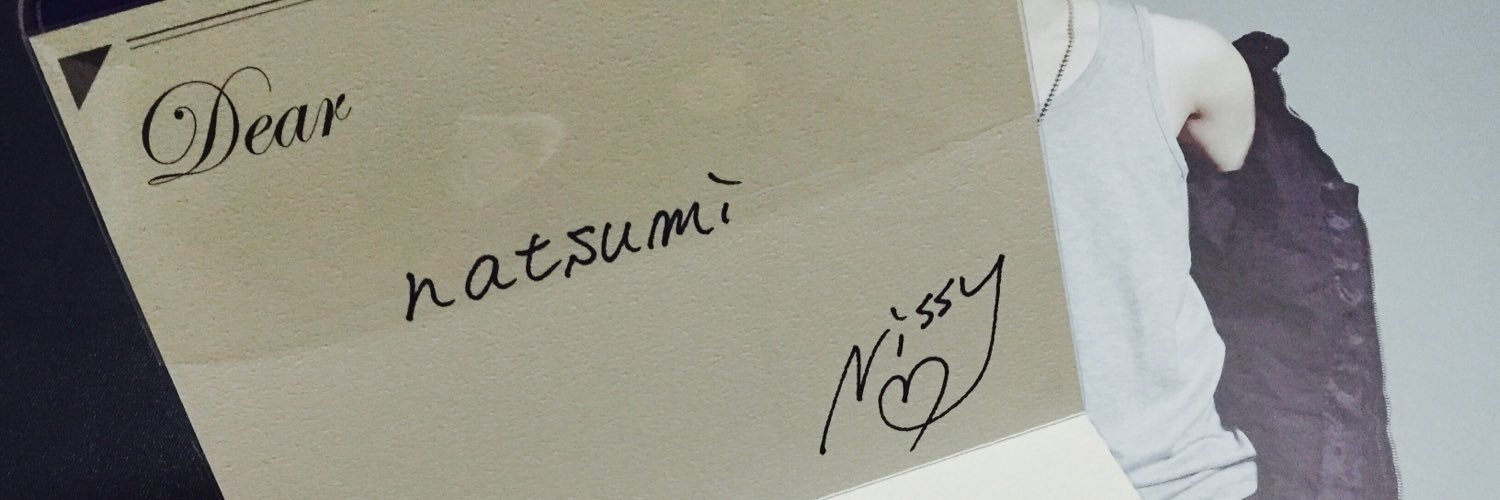 Dear
natsumi
Nissy